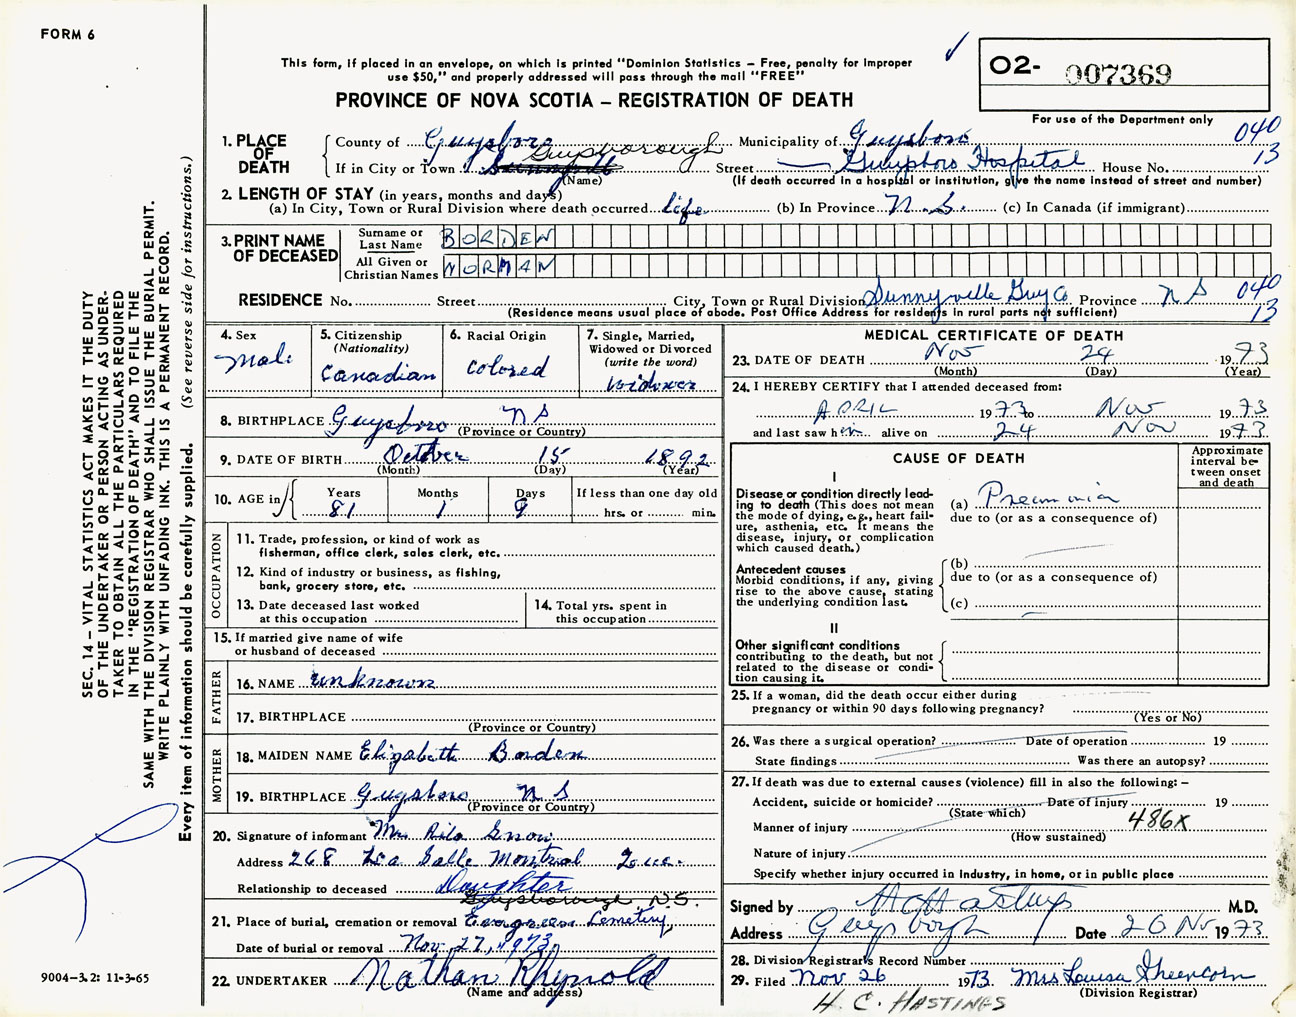 FORM 6
This form, if placed in an envelope, on which is printed "Dominion Statistics – Free, penalty for improper
use $50," and properly addressed will pass through the mail "FREE"
PROVINCE OF NOVA SCOTIA – REGISTRATION OF DEATH
O2- 007369
For use of the Department only
040
13
1. PLACE OF DEATH
County of Guysboro Municipality of Guysboro
Guysborough
If in City or Town Street Guysboro Hospital House No.
(Name) (If death occurred in a hospital or institution, give the name instead of street and number)
2. LENGTH OF STAY (in years, months and days)
(a) In City, Town or Rural Division where death occurred life (b) In Province N.S. (c) In Canada (if immigrant)
3. PRINT NAME OF DECEASED
Surname or Last Name BORDEN
All Given or Christian Names NORMAN
RESIDENCE No. Street City, Town or Rural Division Sunnyville Guy Co Province N S
040
13
(Residence means usual place of abode. Post Office Address for residents in rural parts not sufficient)
4. Sex
Male
5. Citizenship
(Nationality)
Canadian
6. Racial Origin
Colored
7. Single, Married,
Widowed or Divorced
(write the word)
widower
8. BIRTHPLACE Guysboro N S
(Province or Country)
9. DATE OF BIRTH October 15 1892
(Month) (Day) (Year)
10. AGE in
Years Months Days If less than one day old
81 1 9 hrs. or min.
OCCUPATION
11. Trade, profession, or kind of work as
fisherman, office clerk, sales clerk, etc.
12. Kind of industry or business, as fishing,
bank, grocery store, etc.
13. Date deceased last worked
at this occupation
14. Total yrs. spent in
this occupation
15. If married give name of wife
or husband of deceased
FATHER
16. NAME unknown
17. BIRTHPLACE
(Province or Country)
MOTHER
18. MAIDEN NAME Elizabeth Borden
19. BIRTHPLACE Guysboro N S
(Province or Country)
20. Signature of informant Mrs Rita Snow
Address 268 La Salle Montreal Que.
Relationship to deceased Daughter
Guysborough, N.S.
21. Place of burial, cremation or removal Evergreen Cemetery,
Date of burial or removal Nov. 27, 1973
22. UNDERTAKER Nathan Rhynold
(Name and address)
MEDICAL CERTIFICATE OF DEATH
23. DATE OF DEATH Nov 24 1973
(Month) (Day) (Year)
24. I HEREBY CERTIFY that I attended deceased from:
APRIL 1973 to Nov 1973
and last saw him alive on 24 Nov 1973
CAUSE OF DEATH
Approximate
interval be-
tween onset
and death
I
Disease or condition directly lead-
ing to death (This does not mean
the mode of dying, e.g., heart fail-
ure, asthenia, etc. It means the
disease, injury, or complication
which caused death.)
(a) Pneumonia
due to (or as a consequence of)
Antecedent causes
Morbid conditions, if any, giving
rise to the above cause, stating
the underlying condition last.
(b)
due to (or as a consequence of)
(c)
II
Other significant conditions
contributing to the death, but not
related to the disease or condi-
tion causing it.
25. If a woman, did the death occur either during
pregnancy or within 90 days following pregnancy?
(Yes or No)
26. Was there a surgical operation? Date of operation 19
State findings Was there an autopsy?
27. If death was due to external causes (violence) fill in also the following: –
Accident, suicide or homicide? Date of injury 19
(State which)
486X
Manner of injury
(How sustained)
Nature of injury
Specify whether injury occurred in industry, in home, or in public place
Signed by H C Hastings M.D.
Address Guysboro Date 26 Nov 1973
28. Division Registrar's Record Number
29. Filed Nov 26 1973 Mrs Louisa Greencorn
(Division Registrar)
H. C. HASTINGS
SEC. 14 – VITAL STATISTICS ACT MAKES IT THE DUTY
OF THE UNDERTAKER OR PERSON ACTING AS UNDER-
TAKER TO OBTAIN ALL THE PARTICULARS REQUIRED
IN THE "REGISTRATION OF DEATH" AND TO FILE THE
SAME WITH THE DIVISION REGISTRAR WHO SHALL ISSUE THE BURIAL PERMIT.
WRITE PLAINLY WITH UNFADING INK. THIS IS A PERMANENT RECORD.
Every item of information should be carefully supplied. (See reverse side for instructions.)
9004–3.2: 11-3-65